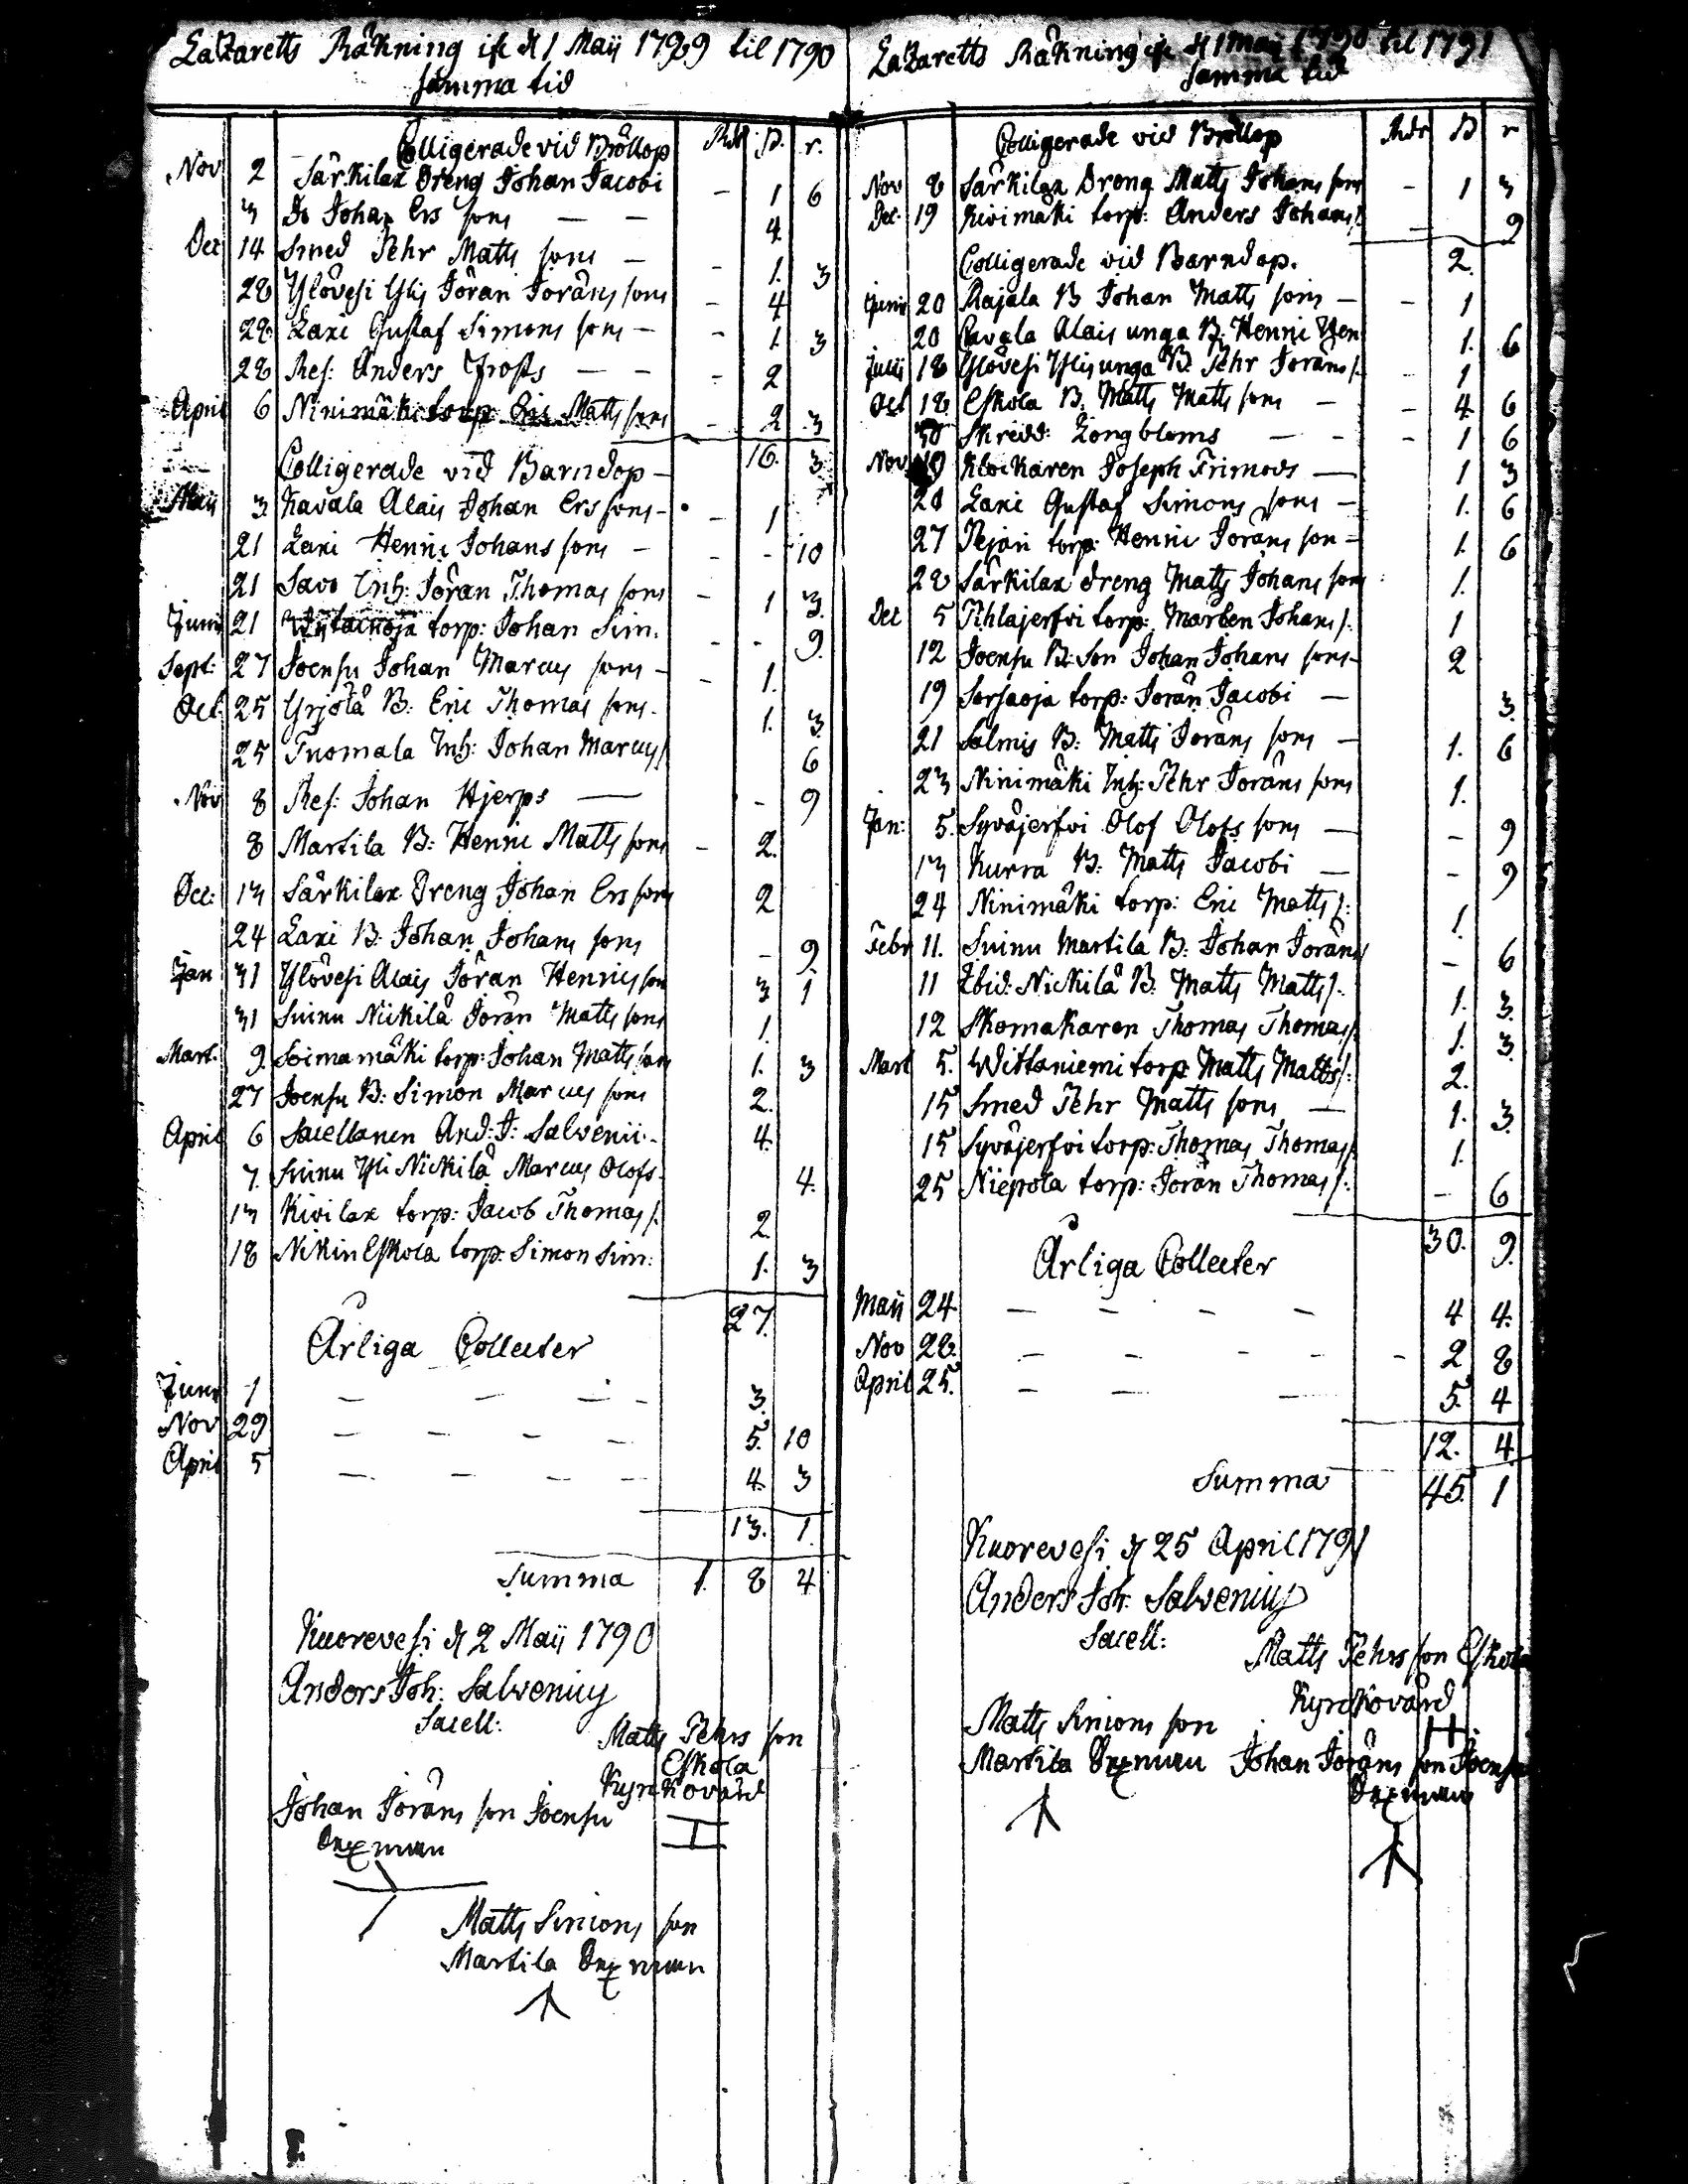 Lazaretts Räkning ifr d 1 Maij 1789 til 1790
samma tid
Colligerade vid Bröllop Rdr ß. r.
Nov 2 Särkilax Dreng Johan Jacobi - 1 6
3 Do Johan Ers sons — — 4
Dec 14 Smed Pehr Matts sons — - 1. 3
28 Ylövesi Ylis Jöran Jorans sons - 4
28 Laxi Gustaf Simons sons — - 1. 3
28 Ref: Anders Frosts — — - 2
April 6 Ninimäki torp Eric Matts sons - 2 3
Colligerade vid Barndop — 16. 3
Maij 3 Kavala Alais Johan Ers sons - - 1
21 Laxi Henric Johans sons — - - 10
21 Savo Inh: Jöran Thomas sons - 1 3
Junii 21 torp: Johan Sim. - - 9.
Sept: 27 Joensu Johan Marcus sons - - 1.
Oct: 25 Yrjölä B: Eric Thomas sons. 1. 3
25 Tuomala Inh: Johan Marcus/ 6
Nov 8 Ref: Johan Hjerps — - 9
8 Martila B: Henric Matts sons - 2.
Dec: 13 Särkilax Dreng Johan Ers sons 2
24 Laxi B: Johan Johans sons - 9
Jan 31 Ylövesi Alais Jöran Henrics son 3 1
31 Suinu Nickilä Jöran Matts sons 1.
Mart. 9. Soimamäki torp: Johan Matts sons 1. 3
27 Joensu B: Simon Marcus sons 2.
April 6 Sacellanen And: J: Salvenii - 4.
7. Suinu Yli Nickilä Marcus Olofs - 4.
13 Kivilax torp: Jacob Thomas/. 2
18 Nikin Eskola torp. Simon Sim: 1. 3
27.
Årliga Collecter
Junii 1 — — — - 3.
Nov 29 — — — — 5. 10
April 5 — — — — 4. 3
13. 1.
Summa 1. 8 4
Kuorevesi d 2 Maij 1790
Anders Joh: Salvenius
Sacell:
Matts Pehrs son
Eskola
Kyrckovärd
Johan Jörans son Joensu
Sexman
Matts Simons son
Martila Sexman
Lazaretts Räkning ifr d 1 Maij 1790 til 1791
samma tid
Colligerade vid Bröllop Rdr ß r
Nov 8 Särkilax Dreng Matts Johans sons - 1 3
Dec. 19 Kivimäki torp: Anders Johans/: - 9
Colligerade vid Barndop. 2.
Junii 20 Rajala B Johan Matts sons — - 1
20 Cavala Alais unga B: Henric Hen 1. 6
Julii 18 Ylövesi Ylis unga B: Pehr Jorans/. - 1
Oct 18 Eskola B: Matts Matts sons — - 4 6
30 Skredd: Longbloms — — - 1 6
Nov 19 Klockaren Joseph Frimods — 1 3
20 Laxi Gustaf Simons sons — 1. 6
27 Pejari torp: Henric Jorans son - 1. 6
28 Särkilax dreng Matts Johans sons 1.
Dec 5 Pihlajerfvi torp: Marten Johans/: 1
12 Joensu B: Son Johan Johans sons - 2
19 Sorsaoja torp: Joran Jacobi — 3.
21 Salmis B: Matts Jorans sons — 1. 6
23 Ninimäki Inh: Pehr Jorans sons 1.
Jan: 5. Syväjerfvi Olof Olofs sons — - 9
13 Kurra B: Matts Jacobi — - 9
24 Ninimäki torp: Eric Matts/: 1.
Febr 11. Suinu Martila B: Johan Jorans/ - 6
11 Ibid: Nickilä B: Matts Matts/: 1. 3.
12 Skomakaren Thomas Thomas/: 1. 3.
Mart 5. Wittaniemi torp Matts Matts/: 2.
15 Smed Pehr Matts sons — 1. 3.
15 Syväjerfvi torp: Thomas Thomas/: 1.
25 Niepola torp: Joran Thomas/: - 6
30. 9.
Årliga Collecter
Maij 24 — — — — 4 4.
Nov 28. — — - - - 2 8
April 25. — — — 5. 4
12. 4
Summa 45. 1
Kuorevesi d 25 April 1791
Anders Joh: Salvenius
Sacell:
Matts Pehrs son Eskola
Kyrckovärd
Matts Simons son
Martila Sexman Johan Jörans son Joensu
Sexman